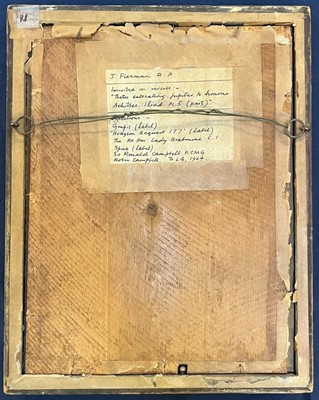 J Flaxman R.A
Inscribed on reverse:-
"Thetis entreating Jupiter to honour
Achilles. Iliad Pl.5 (
Goupil (label)
Hodgson Bequest 177' (label)
The Rt. Hon Lady Brabourne C.I.
Spink (label)
Sir Ronald Campbell KCMG
Robin Campbell D.L.G. 1964